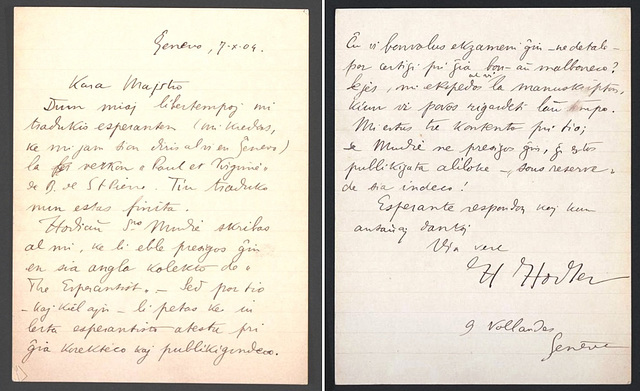 Genevo, 7-x-04.
Kara Majstro
Dum miaj libertempoj mi
tradukis esperanten (mi kredas,
ke mi jam tion diris al vi en Genevo)
la verkon « Paul et Virginie »
de B. de St Pierre. Tiu traduko
nun estas finita.
Hodiaŭ Sro Mudie skribas
al mi, ke li eble presigos ĝin
en sia angla kolekto de «
The Esperantist. » Sed por tio
— kaj kiel ajn — li petas ke iu
lerta esperantisto atestu pri
ĝia korekteco kaj publikigindeco.
Ĉu vi bonvolus ekzameni ĝin — nedetale —
por certigi pri ĝia bon- aŭ malboneco?
Se jes, mi ekspedos al vi la manuskripton,
kiun vi povos rigardi laŭ tempo.
Mi estus tre kontenta pri tio;
se Mudie ne presigos ĝin, ĝi estos
publikigata aliloke —, sous reserve »
de sia indeco!
Esperante respondon kaj kun
antaŭaj dankoj
Via vere
H Hodler
9 Vollandes
Genève